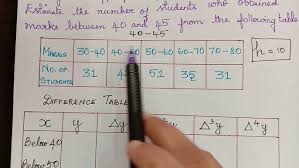 Estimate the number of students who obtained
marks between 40 and 45 from the following table
40-45
MARKS 30-40 40- 50-60 60-70 70-80
h = 10
No. OF STUDENTS 31 51 35 31
DIFFERENCE TABLE
x y Δy Δ³y Δ⁴y
Below 40
Below 50